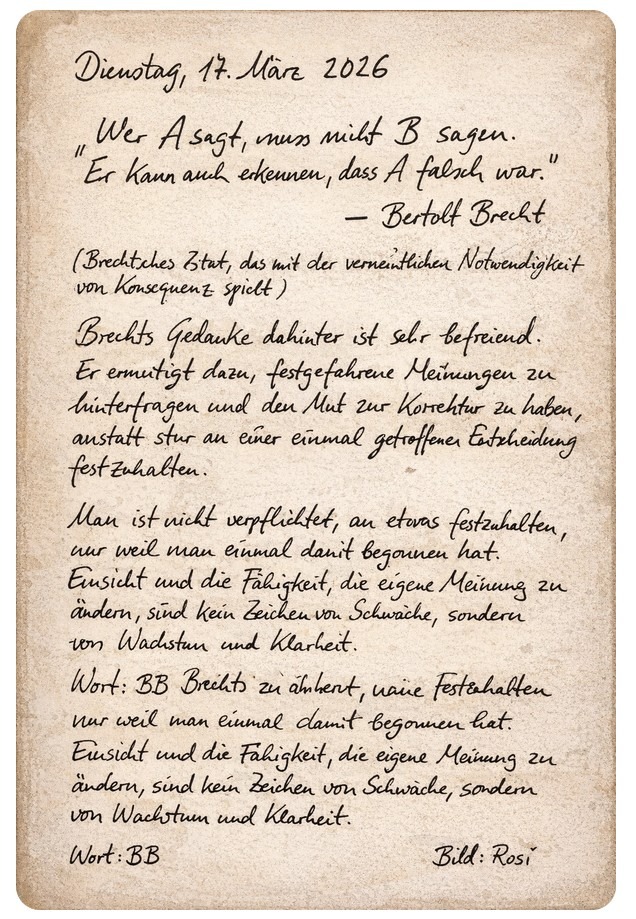 Dienstag, 17. März 2026
„Wer A sagt, muss nicht B sagen.
Er kann auch erkennen, dass A falsch war."
— Bertolt Brecht
(Brechtsches Zitat, das mit der vermeintlichen Notwendigkeit
von Konsequenz spielt)
Brechts Gedanke dahinter ist sehr befreiend.
Er ermutigt dazu, festgefahrene Meinungen zu
hinterfragen und den Mut zur Korrektur zu haben,
anstatt stur an einer einmal getroffenen Entscheidung
festzuhalten.
Man ist nicht verpflichtet, an etwas festzuhalten,
nur weil man einmal damit begonnen hat.
Einsicht und die Fähigkeit, die eigene Meinung zu
ändern, sind kein Zeichen von Schwäche, sondern
von Wachstum und Klarheit.
Wort: BB Brechts zu
nur weil man einmal damit begonnen hat.
Einsicht und die Fähigkeit, die eigene Meinung zu
ändern, sind kein Zeichen von Schwäche, sondern
von Wachstum und Klarheit.
Wort: BB
Bild: Rosi